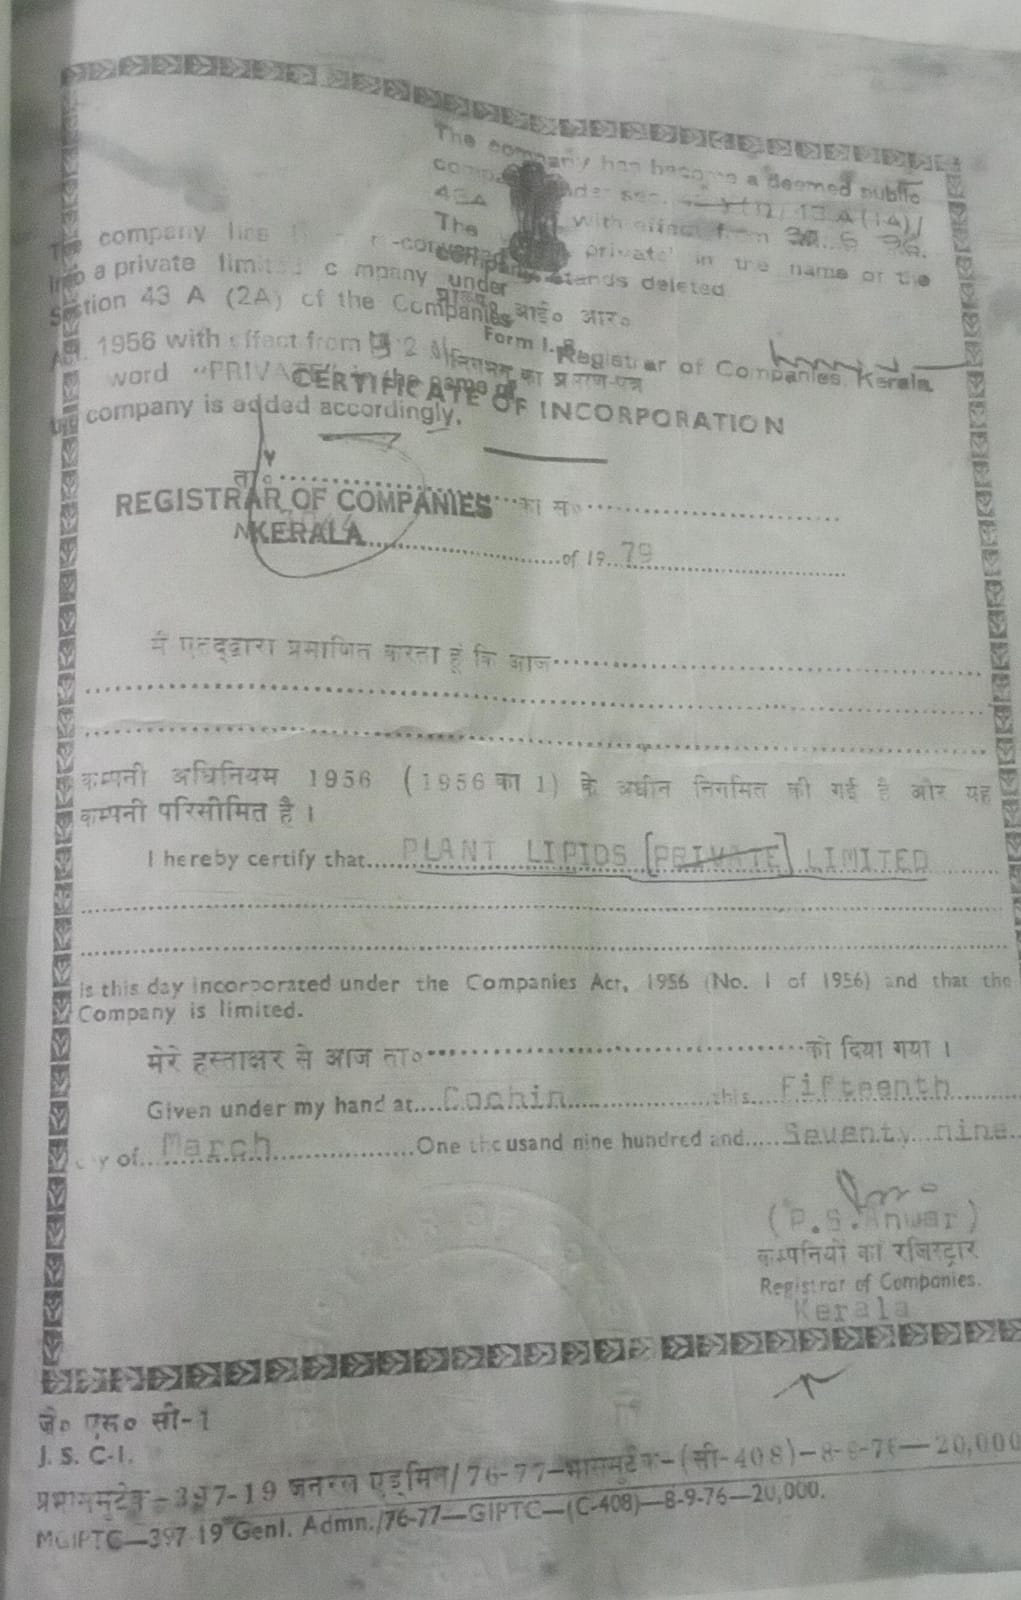 The company has become a deemed public
43A
with effect from
The private' in the name of the
company stands deleted
Registrar of Companies, Kerala
company has re-converted
into a private limited company under
Section 43 A (2A) of the Companies
1956 with effect from
word "PRIVATE" in the name of
the company is added accordingly.
REGISTRAR OF COMPANIES
KERALA
आई० आर०
Form I. R.
निगमन का प्रमाण-पत्र
CERTIFICATE OF INCORPORATION
ता० का सं०
of 19 79
मैं एतद्द्वारा प्रमाणित करता हूं कि आज
कम्पनी अधिनियम 1956 (1956 का 1) के अधीन निगमित की गई है और यह
कम्पनी परिसीमित है ।
I hereby certify that PLANT LIPIDS [PRIVATE] LIMITED
is this day incorporated under the Companies Act, 1956 (No. 1 of 1956) and that the
Company is limited.
मेरे हस्ताक्षर से आज ता० को दिया गया ।
Given under my hand at Cochin this Fifteenth
day of March One thousand nine hundred and Seventy nine
(P.S.Anwar)
कम्पनियों का रजिस्ट्रार
Registrar of Companies.
Kerala
जे० एस० सी-1
J. S. C-1.
397-19 जनरल एडमिन/76-77—भासमुटेक—(सी-408)—8-9-76—20,000
MGIPTC—397-19 Genl. Admn./76-77—GIPTC—(C-408)—8-9-76—20,000.